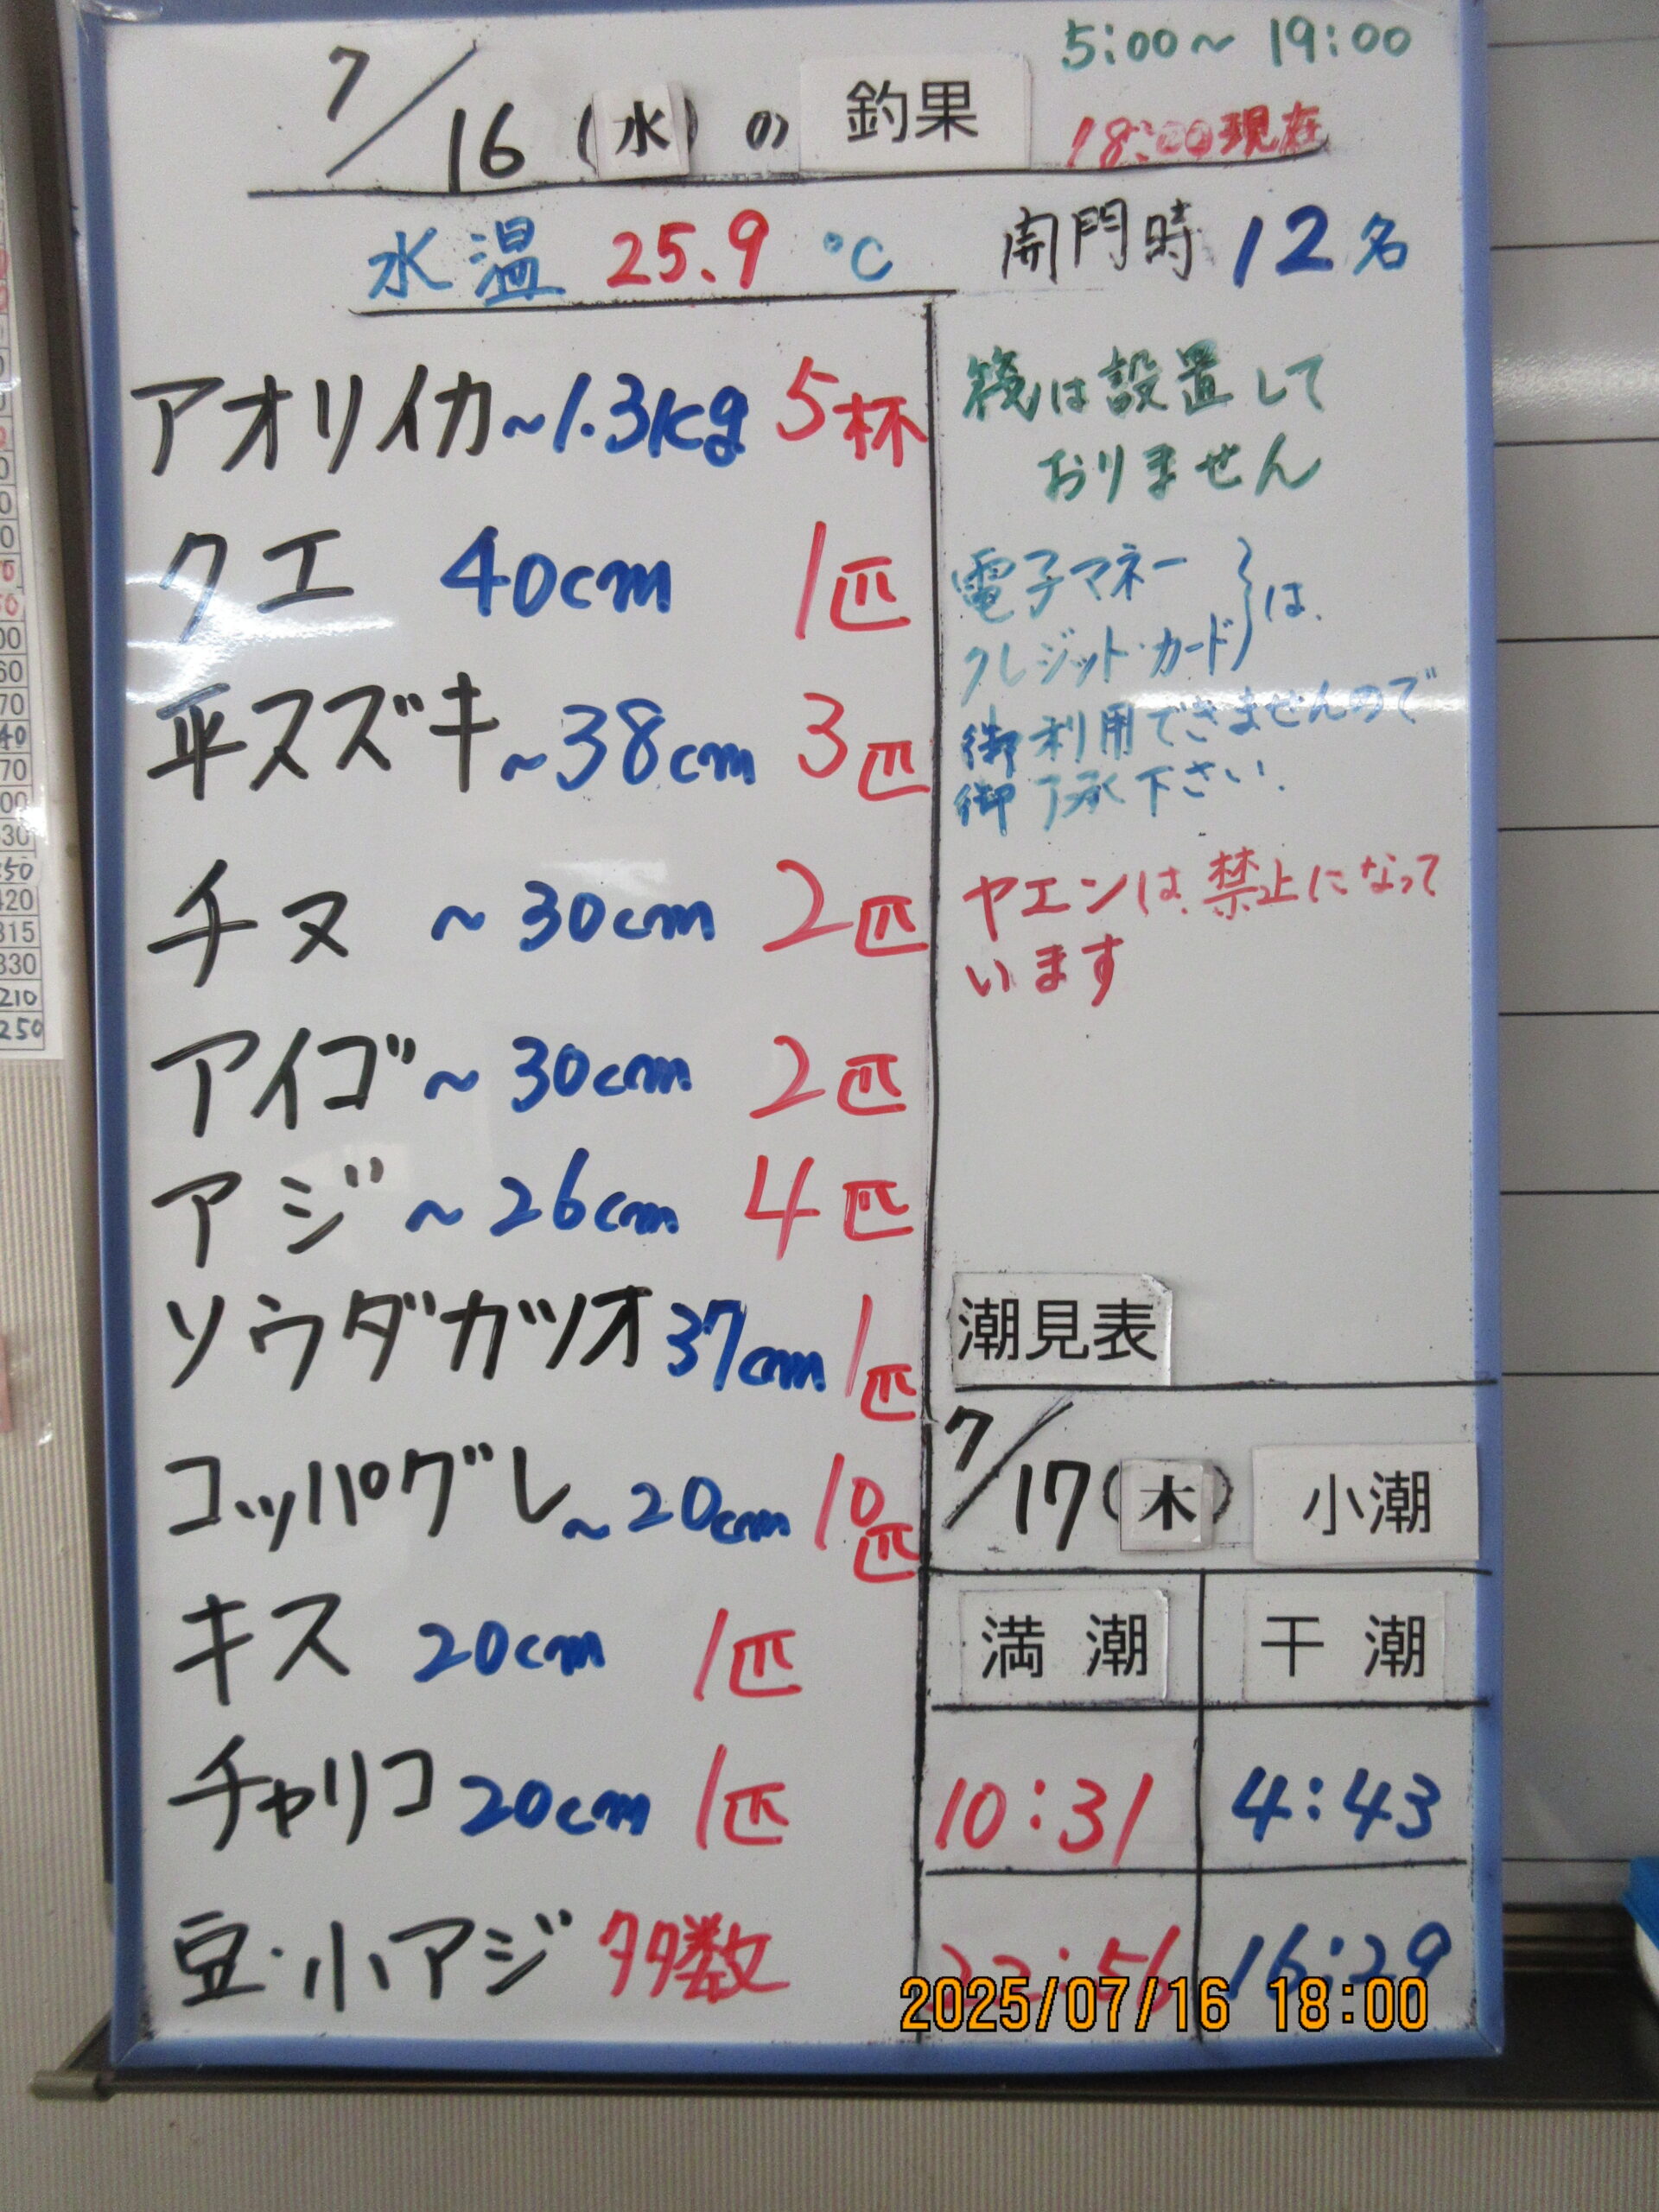 5:00～19:00
7/16(水)の釣果
18:00現在
水温 25.9℃
開門時 12名
アオリイカ ～1.3kg 5杯
クエ 40cm 1匹
平スズキ ～38cm 3匹
チヌ ～30cm 2匹
アイゴ ～30cm 2匹
アジ ～26cm 4匹
ソウダカツオ 37cm 1匹
コッパグレ ～20cm 10匹
キス 20cm 1匹
チャリコ 20cm 1匹
豆・小アジ 多数
筏は設置して
おりません
電子マネー
クレジット・カード}は、
御利用できませんので
御了承下さい.
ヤエンは、禁止になって
います
潮見表
7/17(木) 小潮
満潮 干潮
10:31 4:43
22:56 16:29
2025/07/16 18:00
00
60
70
40
70
00
30
250
420
315
330
210
250